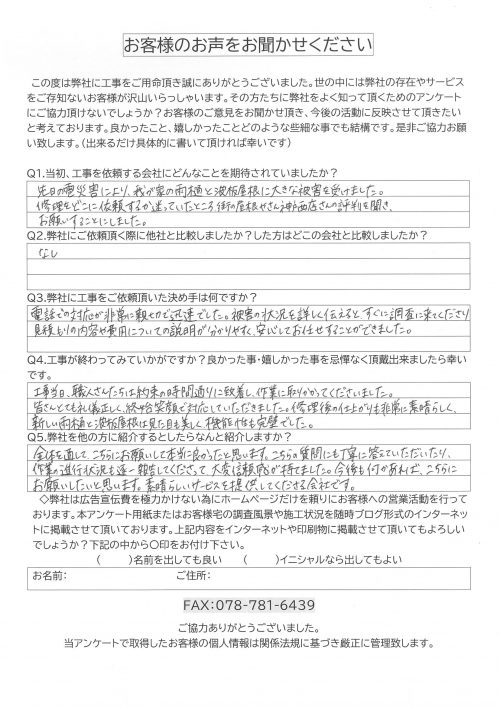 お客様のお声をお聞かせください
この度は弊社に工事をご用命頂き誠にありがとうございました。世の中には弊社の存在やサービス
をご存知ないお客様が沢山いらっしゃいます。その方たちに弊社をよく知って頂くためのアンケート
にご協力頂けないでしょうか？お客様のご意見をお聞かせ頂き、今後の活動に反映させて頂きたい
と考えております。良かったこと、嬉しかったことどのような些細な事でも結構です。是非ご協力お願
い致します。（出来るだけ具体的に書いて頂ければ幸いです）
Q1.当初、工事を依頼する会社にどんなことを期待されていましたか？
先日の雹災害により、我が家の雨樋と波板屋根に大きな被害を受けました。
修理をどこに依頼するか迷っていたところ街の屋根やさん神戸西店さんの評判を聞き、
お願いすることにしました。
Q2.弊社にご依頼頂く際に他社と比較しましたか？した方はどこの会社と比較しましたか？
なし
Q3.弊社に工事をご依頼頂いた決め手は何ですか？
電話での対応が非常に親切で迅速でした。被害の状況を詳しく伝えると、すぐに調査に来てくださり
見積もりの内容や費用についての説明が分かりやすく、安心してお任せすることができました。
Q4.工事が終わってみていかがですか？良かった事・嬉しかった事を忌憚なく頂戴出来ましたら幸い
です。
工事当日、職人さんたちは約束の時間通りに到着し、作業に取りかかってくださいました。
皆さんとても礼儀正しく、終始笑顔で対応していただきました。修理後の仕上がりも非常に素晴らしく、
新しい雨樋と波板屋根は見た目も美しく機能性も完璧でした。
Q5.弊社を他の方に紹介するとしたらなんと紹介しますか？
全体を通して、こちらにお願いして本当に良かったと思います。こちらの質問にも丁寧に答えていただいたり、
作業の進行状況も逐一報告してくださって、大変信頼感が持てました。今後も何かあれば、こちらに
お願いしたいと思います。素晴らしいサービスを提供してくださる会社です。
◇弊社は広告宣伝費を極力かけない為にホームページだけを頼りにお客様への営業活動を行って
おります。本アンケート用紙またはお客様宅の調査風景や施工状況を随時ブログ形式のインターネッ
トに掲載させて頂いております。上記内容をインターネットや印刷物に掲載させて頂いてもよろしい
でしょうか？下記の中から〇印をお付け下さい。
（　　）名前を出しても良い　（　　）イニシャルなら出してもよい
お名前：　ご住所：
FAX：078-781-6439
ご協力ありがとうございました。
当アンケートで取得したお客様の個人情報は関係法規に基づき厳正に管理致します。